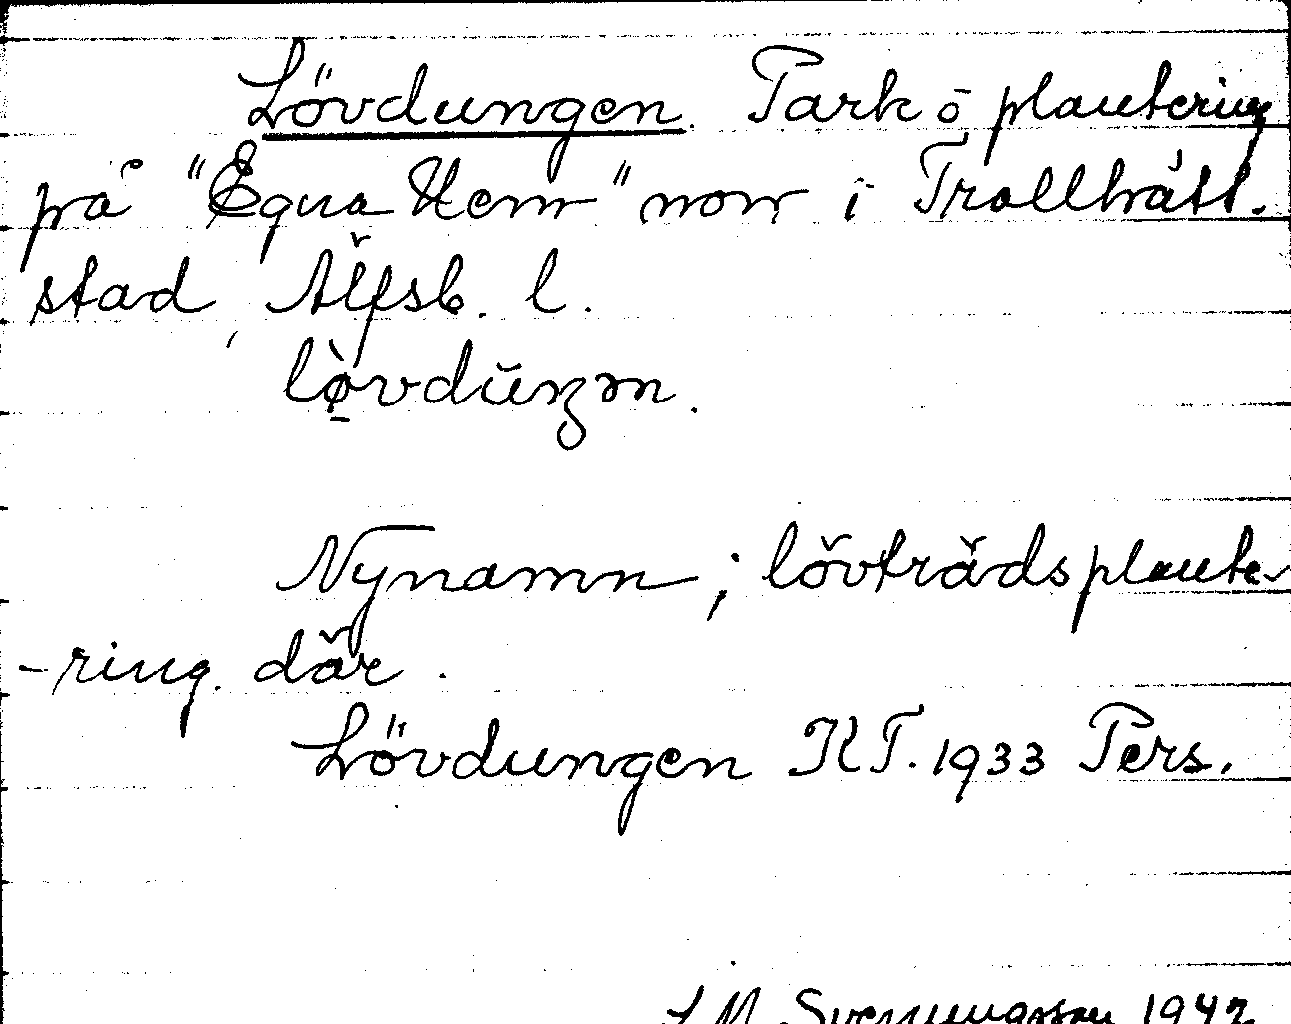 Lövdungen. Park o. plantering
på "Egna Hem" norr i Trollhätt.
stad, Älfsb. l.
lø̠̀vdŭŋən.
Nynamn; lövträdsplante-
-ring där.
Lövdungen KT. 1933 Pers.
Svenungsson 1942